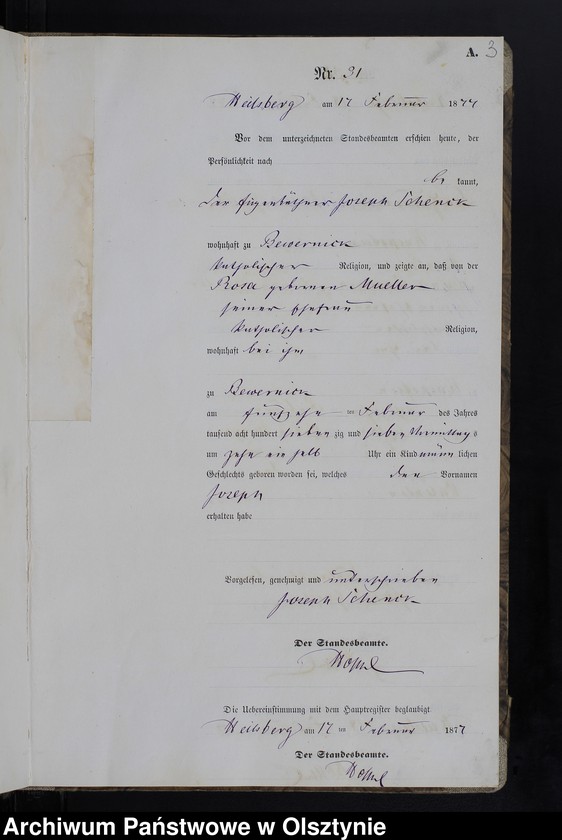 A. 3
Nr. 31
Heilsberg am 17 Februar 1877
Vor dem unterzeichneten Standesbeamten erschien heute, der
Persönlichkeit nach
be kannt,
der Eigenkäthner Joseph Schenck
wohnhaft zu Bewernick
katholischer Religion, und zeigte an, daß von der
Rosa geborenen Mueller
seiner Ehefrau
katholischer Religion,
wohnhaft bei ihm
zu Bewernick
am fünfzehn ten Februar des Jahres
tausend acht hundert sieben zig und sieben Vormittags
um zehn ein halb Uhr ein Kind männ lichen
Geschlechts geboren worden sei, welches den Vornamen
Joseph
erhalten habe
Vorgelesen, genehmigt und unterschrieben
Joseph Schenck
Der Standesbeamte.
Die Uebereinstimmung mit dem Hauptregister beglaubigt
Heilsberg am 17 ten Februar 1877
Der Standesbeamte.
Archiwum Państwowe w Olsztynie